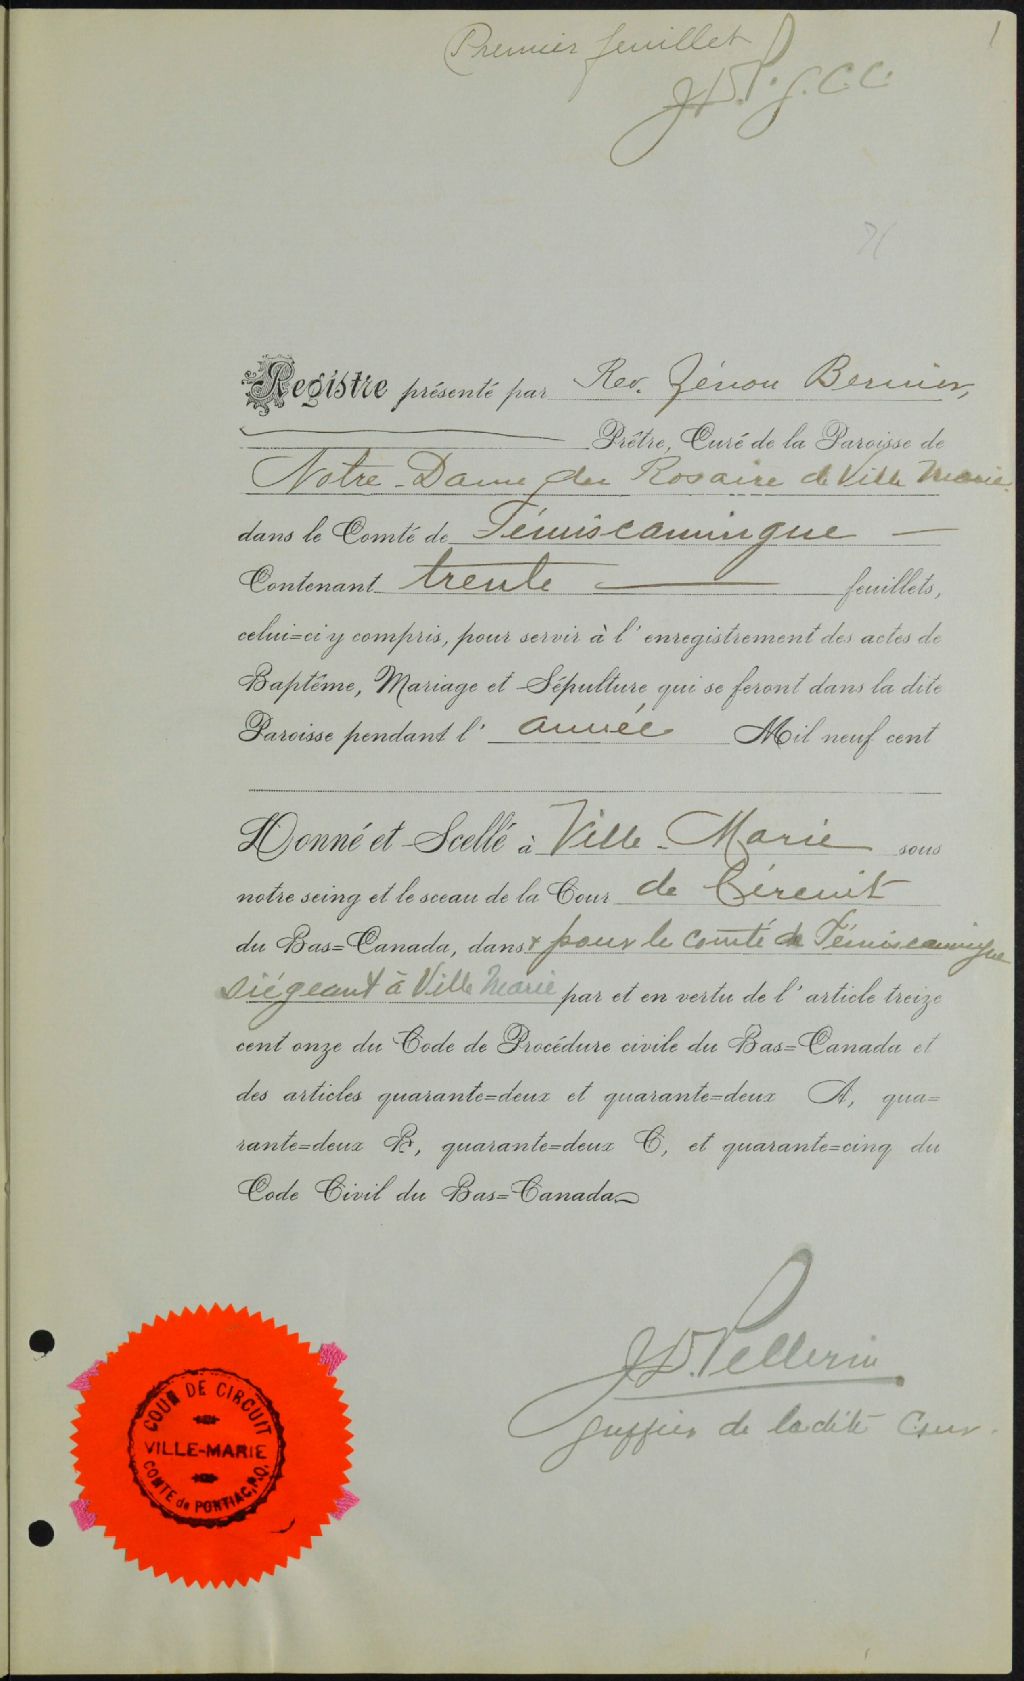 Premier feuillet
1
J.D.P. g.C.C.
Registre présenté par Rev. Zénon Bernier,
Prêtre, Curé de la Paroisse de
Notre-Dame du Rosaire de Ville Marie
dans le Comté de Témiscamingue
Contenant trente feuillets,
celui=ci y compris, pour servir à l'enregistrement des actes de
Baptême, Mariage et Sépulture qui se feront dans la dite
Paroisse pendant l'année Mil neuf cent
Donné et Scellé à Ville-Marie sous
notre seing et le sceau de la Cour de Circuit
du Bas=Canada, dans & pour le comté de Témiscamingue
siégeant à Ville Marie par et en vertu de l'article treize
cent onze du Code de Procédure civile du Bas=Canada et
des articles quarante=deux et quarante=deux A, qua=
rante=deux B, quarante=deux C, et quarante=cinq du
Code Civil du Bas=Canada
J.D. Pellerin
Greffier de la dite Cour.
COUR DE CIRCUIT
VILLE-MARIE
COMTE de PONTIAC, P.Q.